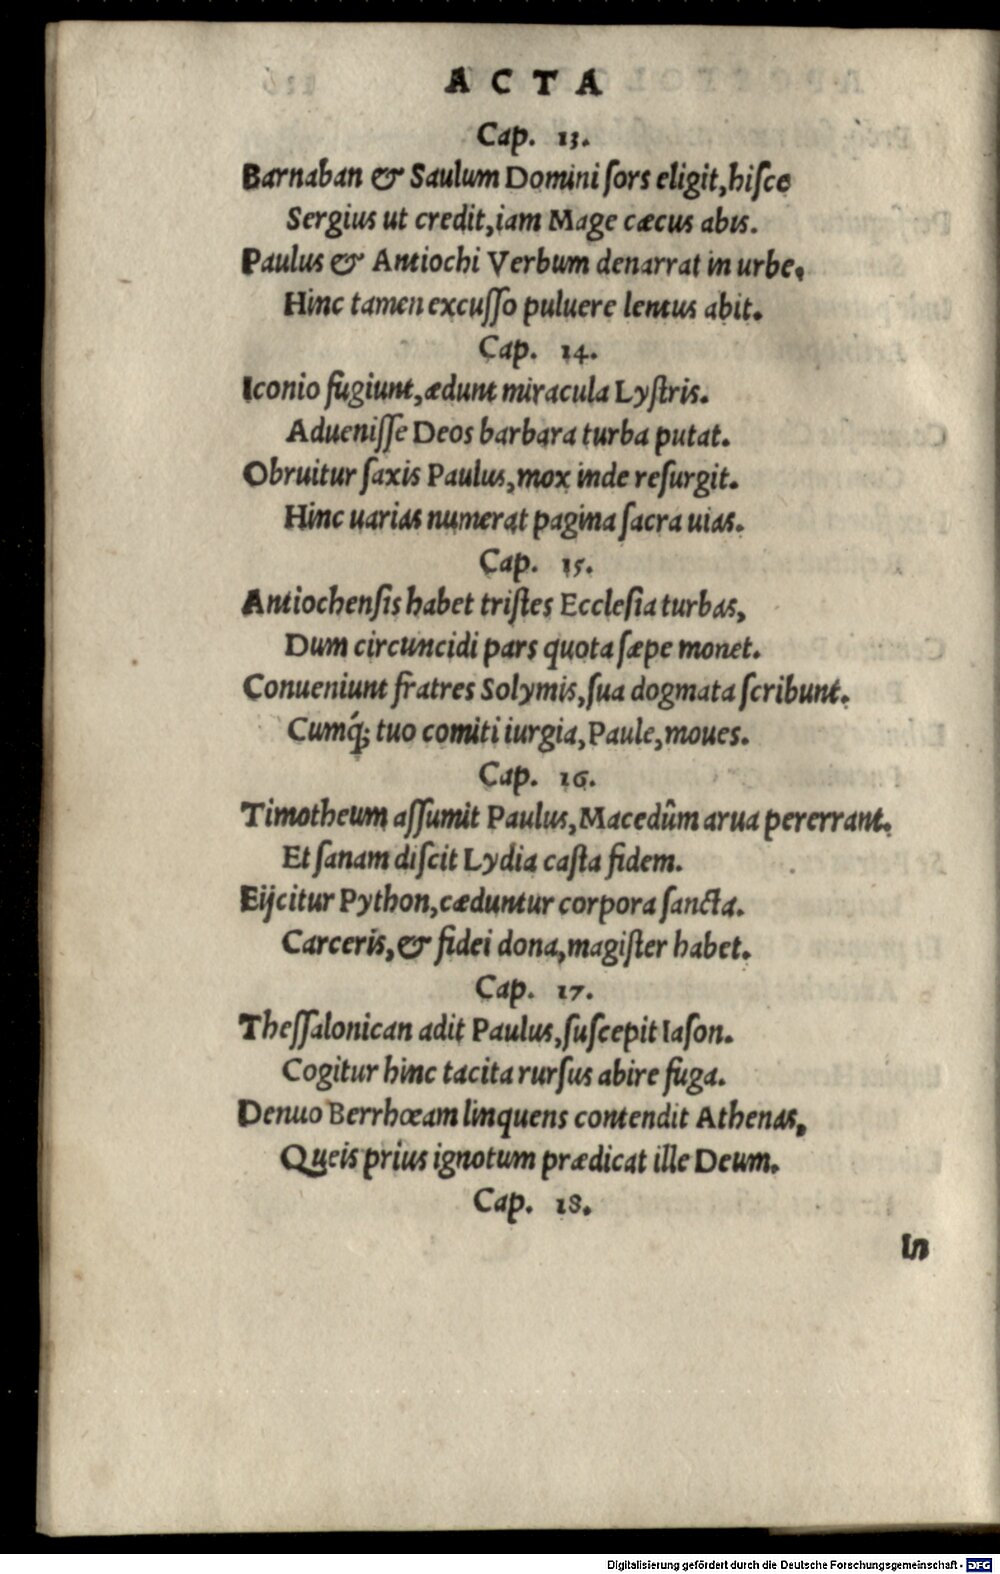 ACTA
Cap. 13.
Barnaban & Saulum Domini ſors eligit, hiſce
Sergius ut credit, iam Mage cæcus abis.
Paulus & Antiochi Verbum denarrat in urbe,
Hinc tamen excuſſo puluere lentus abit.
Cap. 14.
Iconio fugiunt, ædunt miracula Lyſtris.
Adueniſſe Deos barbara turba putat.
Obruitur ſaxis Paulus, mox inde reſurgit.
Hinc uarias numerat pagina ſacra uias.
Cap. 15.
Antiochenſis habet triſtes Eccleſia turbas,
Dum circuncidi pars quota ſæpe monet.
Conueniunt fratres Solymis, ſua dogmata ſcribunt.
Cumq́; tuo comiti iurgia, Paule, moues.
Cap. 16.
Timotheum aſſumit Paulus, Macedûm arua pererrant.
Et ſanam diſcit Lydia caſta fidem.
Eijcitur Python, cæduntur corpora ſancta.
Carceris, & fidei dona, magiſter habet.
Cap. 17.
Theſſalonican adit Paulus, ſuſcepit Iaſon.
Cogitur hinc tacita rurſus abire fuga.
Denuo Berrhœam linquens contendit Athenas,
Queis prius ignotum prædicat ille Deum.
Cap. 18.
In
Digitalisierung gefördert durch die Deutsche Forschungsgemeinschaft - DFG